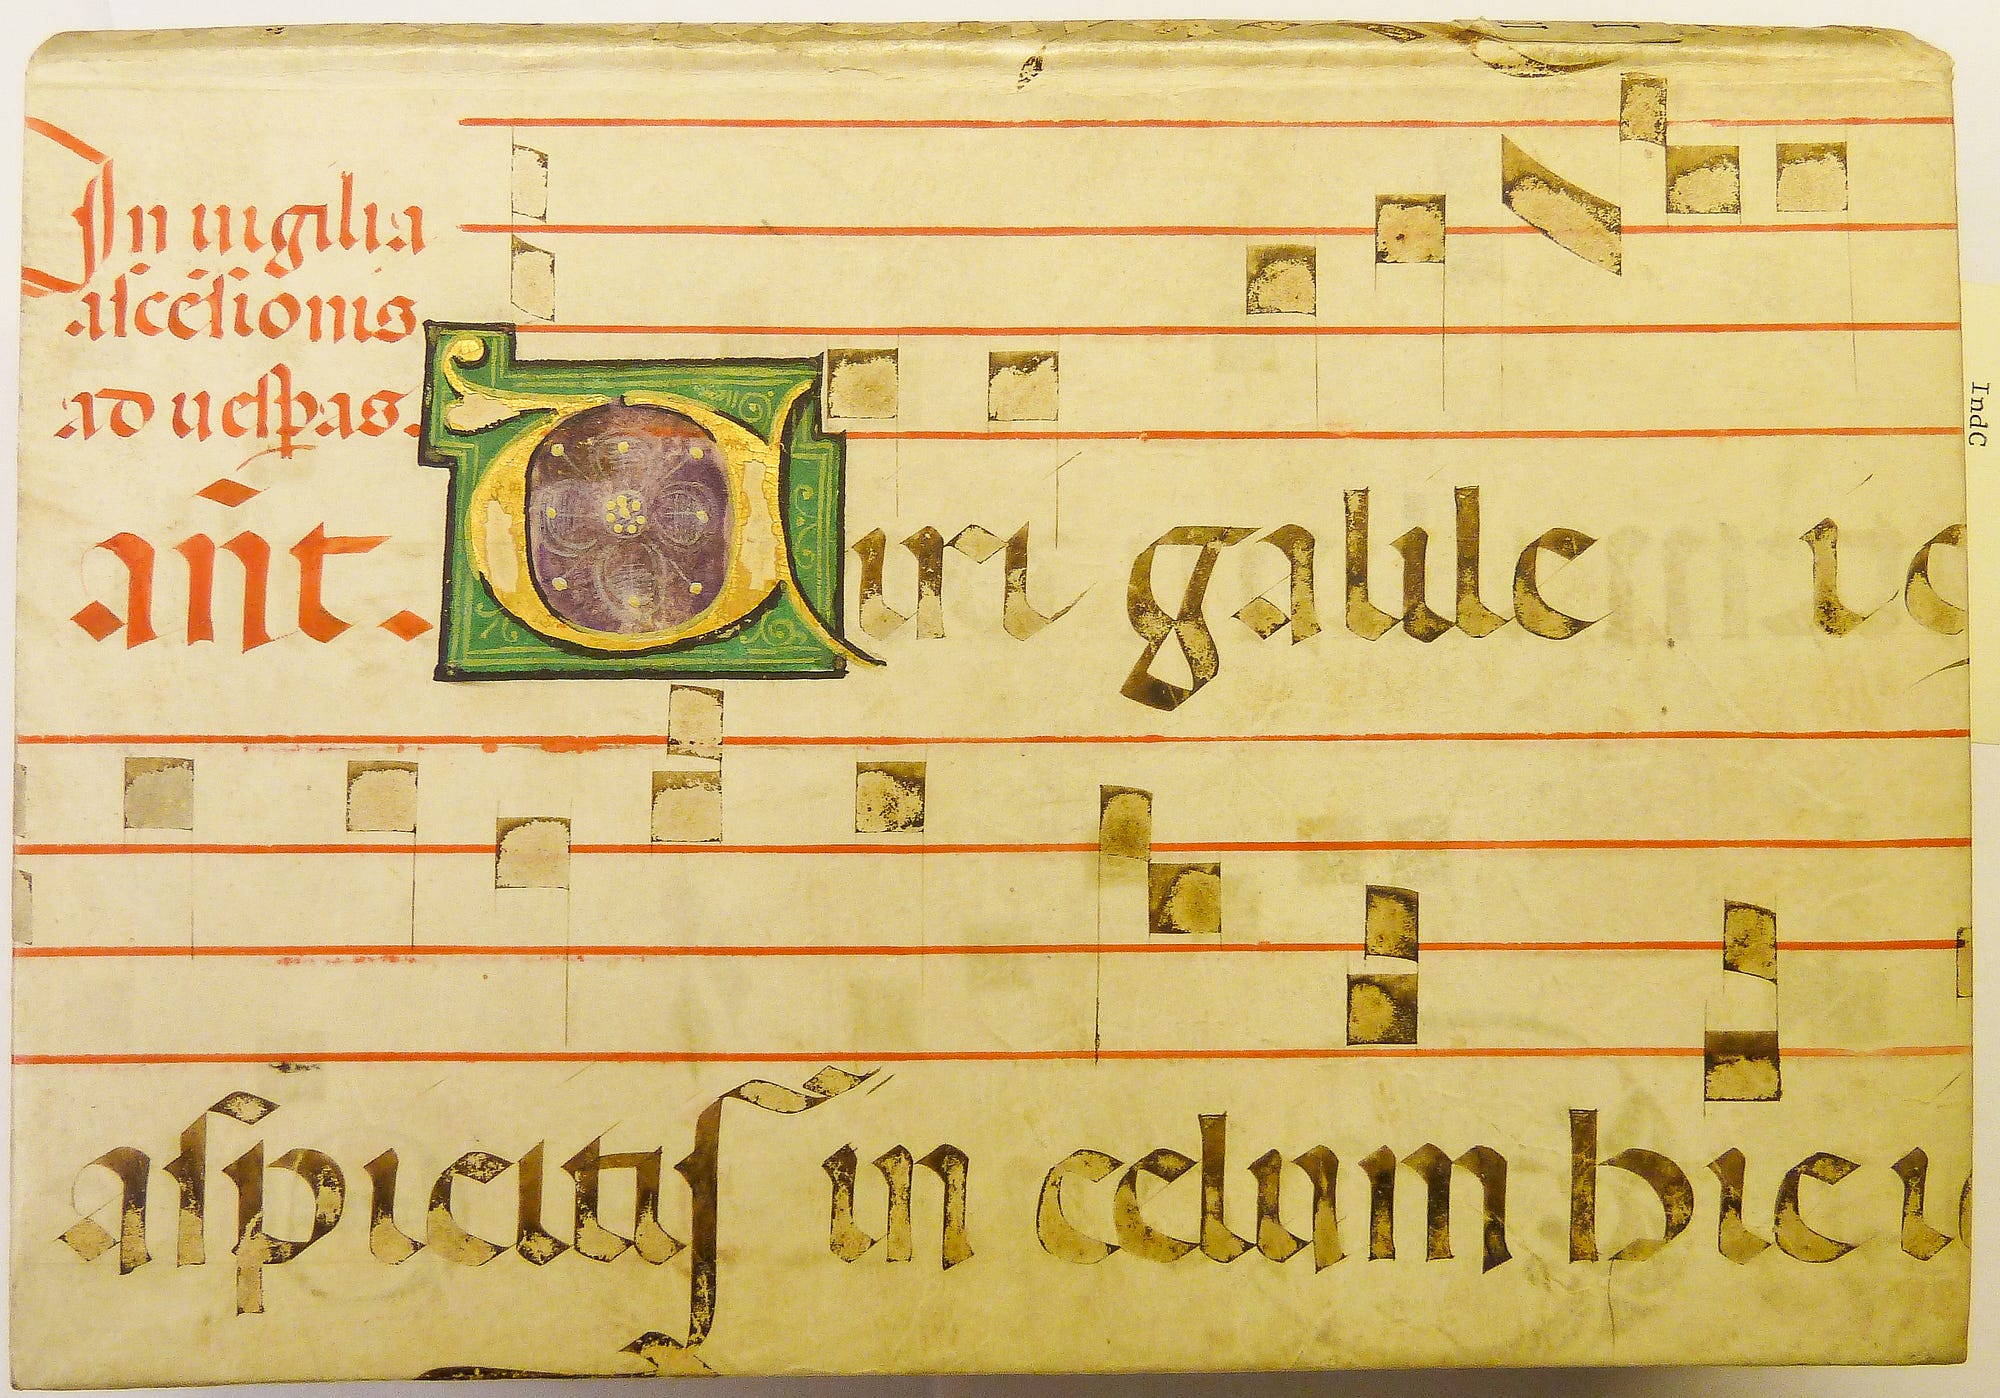 In uigilia
ascẽsionis
ad uesp̱as.
añt. Uiri galile
aspicitis in celum hic
IndC